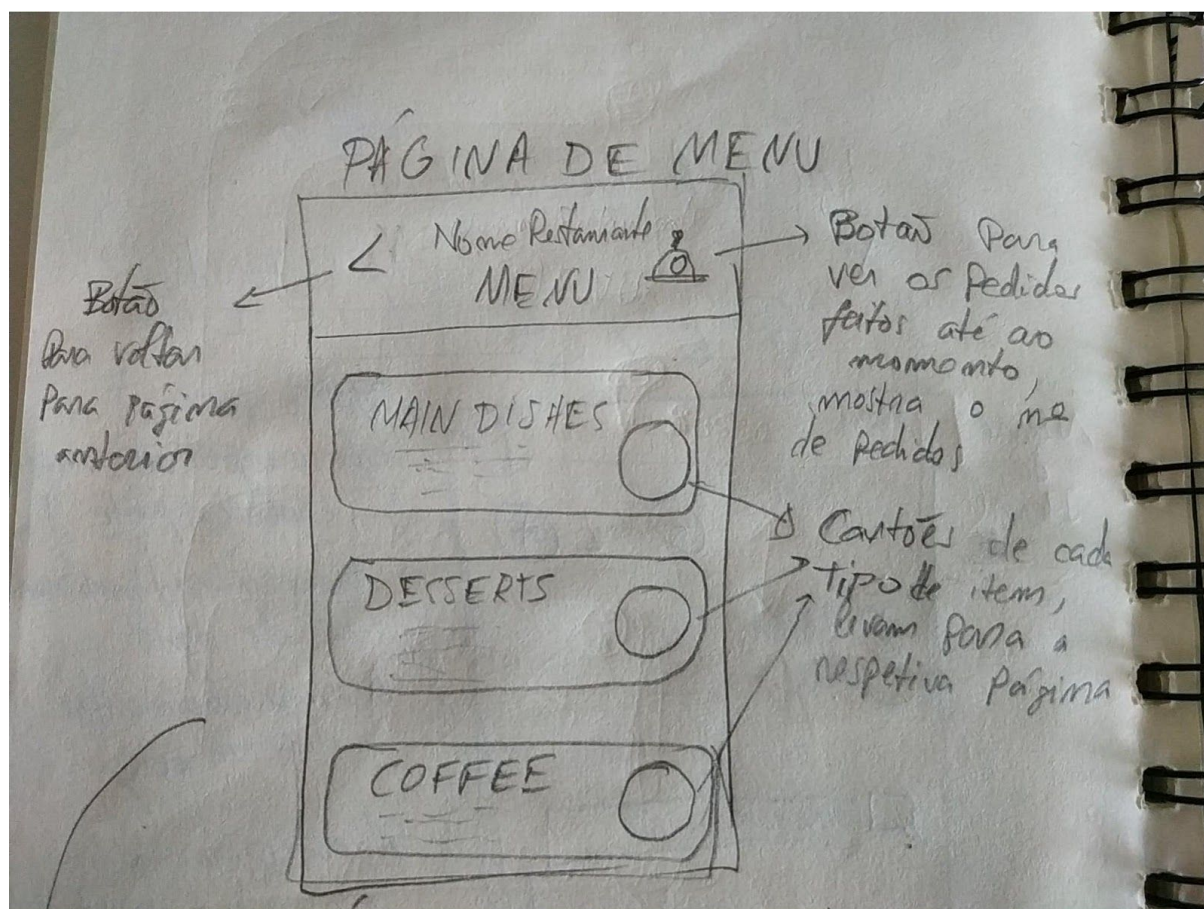 PÁGINA DE MENU
< Nome Restaurante
MENU
Botão
para voltar
para página
anterior
Botão para
ver os pedidos
feitos até ao
momento,
mostra o nº
de pedidos
MAIN DISHES
DESSERTS
COFFEE
Cartões de cada
tipo de item,
levam para a
respetiva página